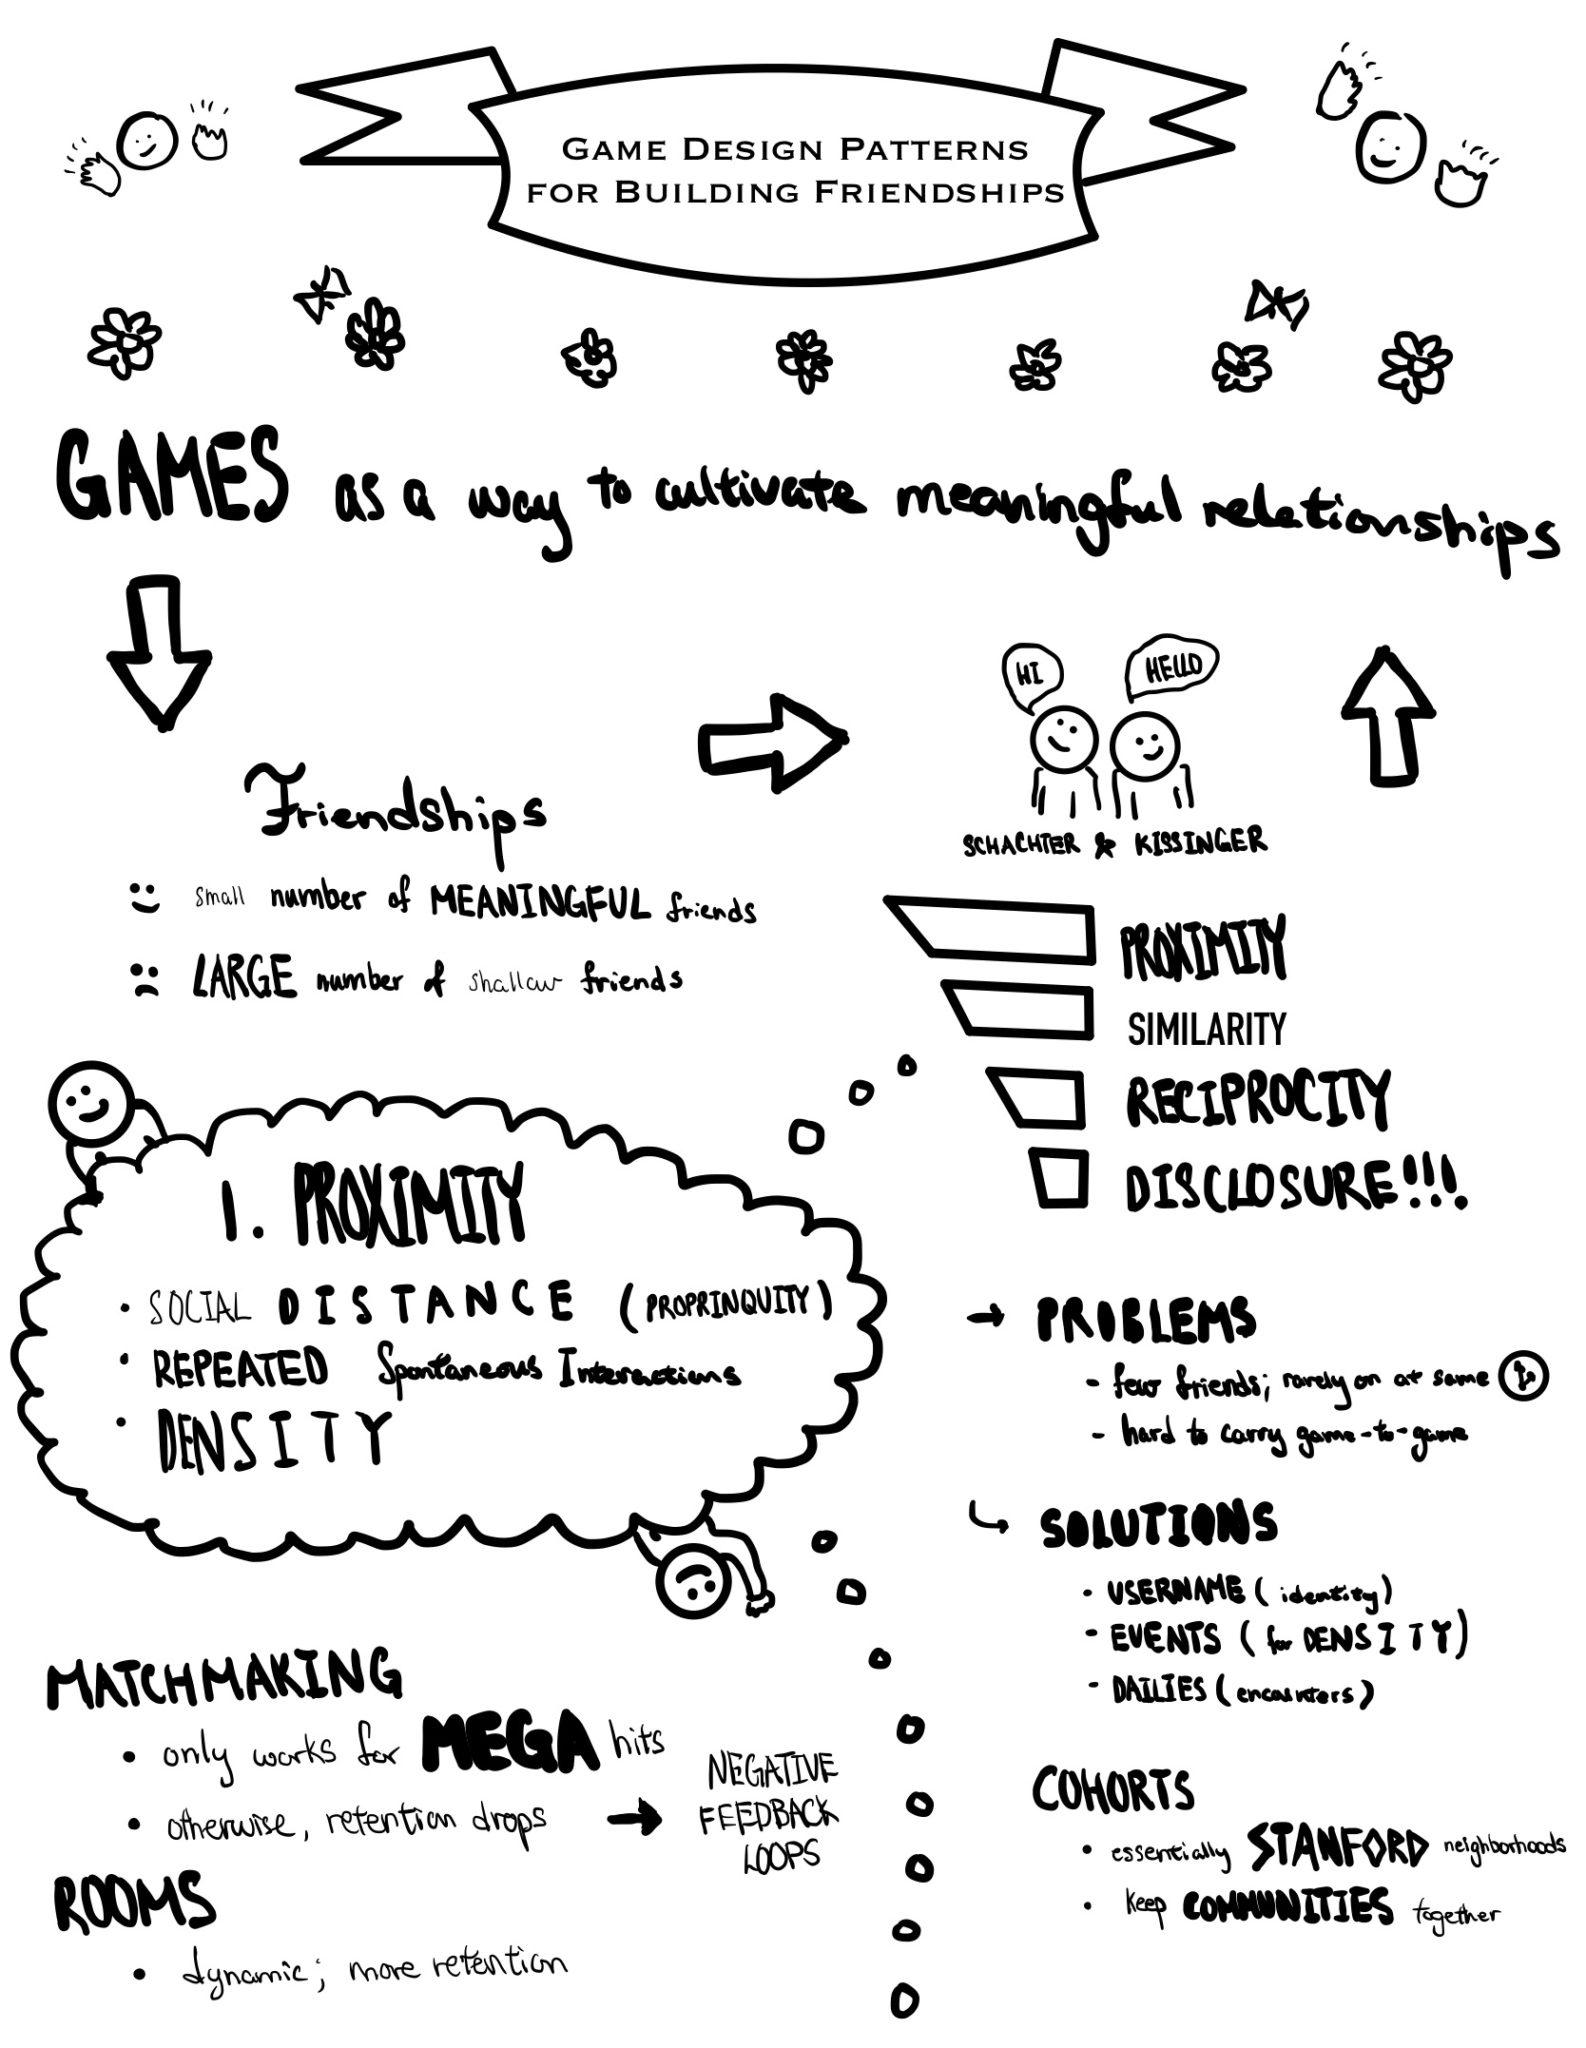 GAME DESIGN PATTERNS
FOR BUILDING FRIENDSHIPS
GAMES as a way to cultivate meaningful relationships
HI
HELLO
SCHACHTER & KISSINGER
Friendships
small number of MEANINGFUL friends
LARGE number of shallow friends
PROXIMITY
SIMILARITY
RECIPROCITY
DISCLOSURE!!!
1. PROXIMITY
• SOCIAL DISTANCE (PROPRINQUITY)
• REPEATED Spontaneous Interactions
• DENSITY
→ PROBLEMS
- few friends; rarely on at same
- hard to carry game-to-game
SOLUTIONS
- USERNAME (identity)
- EVENTS (for DENSITY)
- DAILIES (encounters)
MATCHMAKING
• only works for MEGA hits
• otherwise, retention drops → NEGATIVE
FEEDBACK
LOOPS
ROOMS
• dynamic; more retention
COHORTS
• essentially STANFORD neighborhoods
• keep COMMUNITIES together